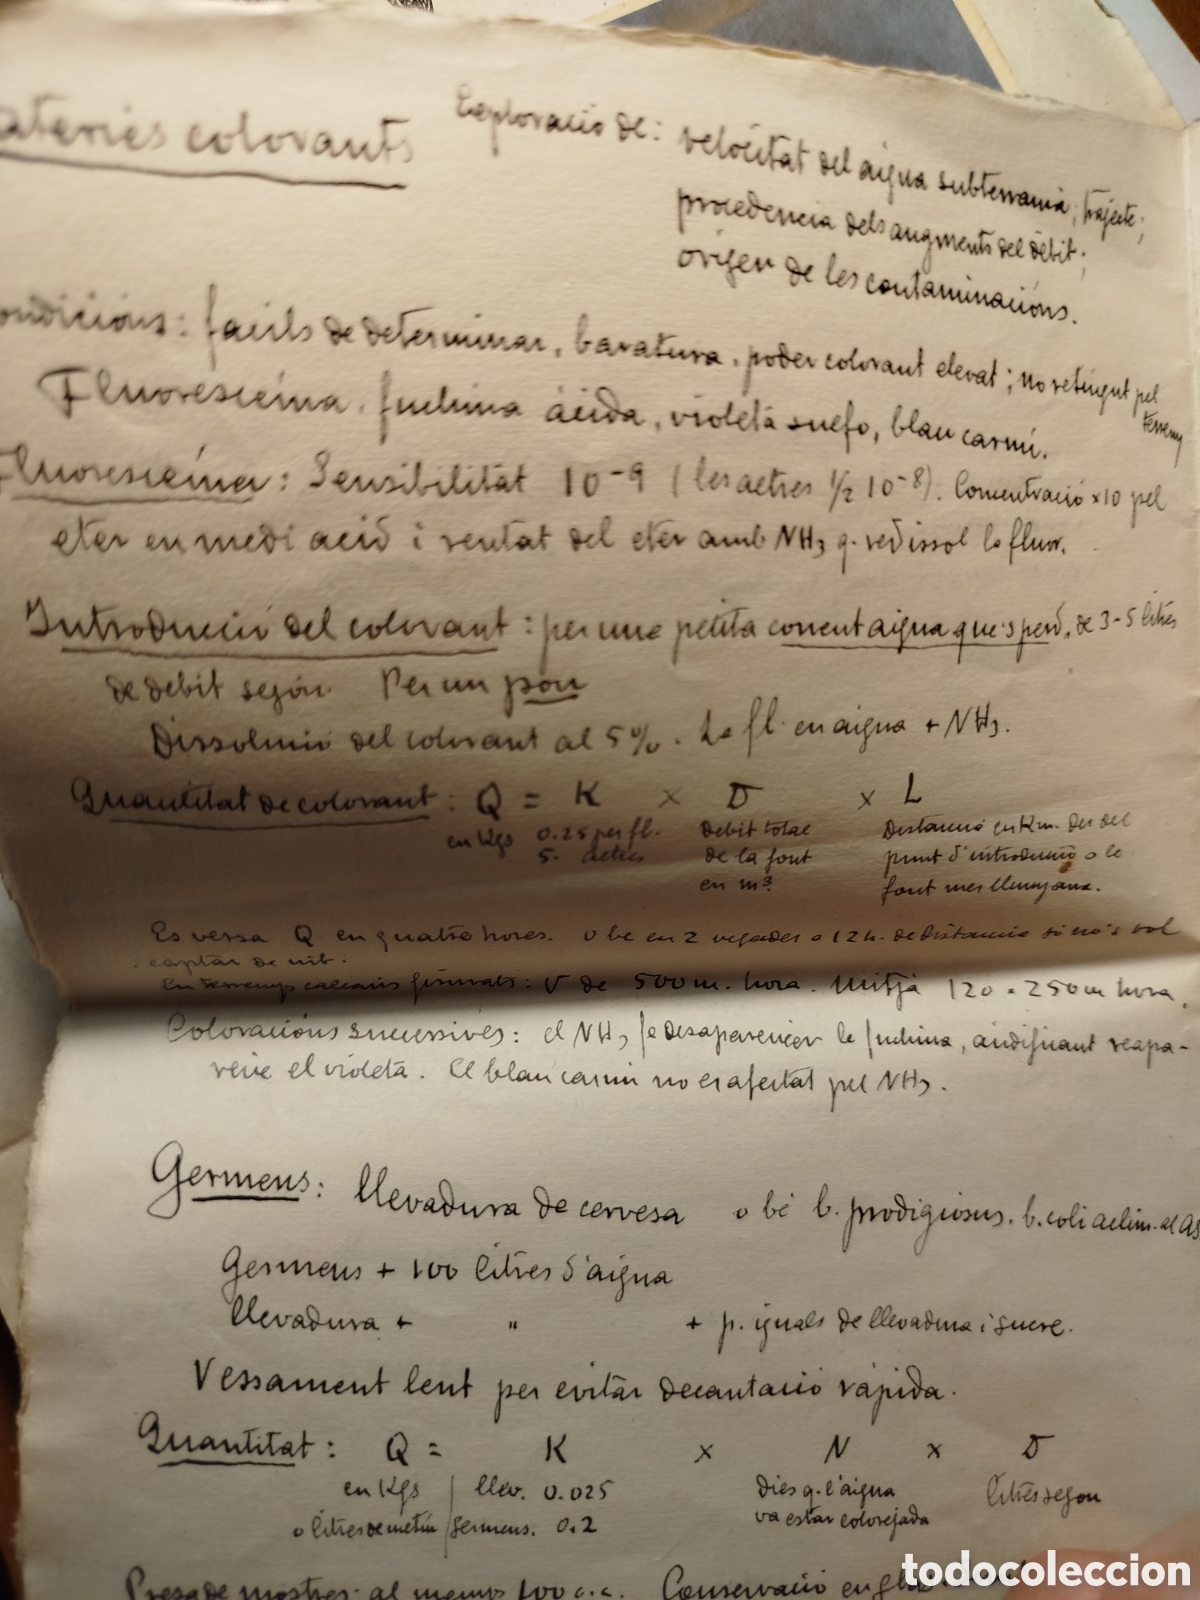 ateries colorants
Exploració de: velocitat del aigua subterrania; trajecte;
procedencia dels augments del dèbit;
origen de les contaminacións.
ondicións: facils de determinar, baratura, poder colorant elevat; no retingut pel
terreny
Fluoresceína, fuchina àcida, violeta suefo, blau carmi.
Fluoresceína: Sensibilitat 10⁻⁹ (les altres ½ 10⁻⁸). Concentració x10 pel
eter en medi acid i rentat del eter amb NH₃ q. redissol la fluor.
Introducció del colorant: per una petita corrent aigua que's perd, de 3-5 litres
de debit segón. Per un pou
Dissolució del colorant al 5%. La fl. en aigua + NH₃.
Quantitat de colorant: Q = K x D x L
en Kgs 0.25 per fl. debit total Distancia en Km. des del
5. altres de la font punt d'introducció a la
en m³ font mes llunyana.
Es versa Q en quatre hores. o be en 2 vegades a 12 h. de distancia si no's vol
captar de nit.
En terrenys calcaris fisurats: V de 500 m. hora. Mitja 120 a 250 m hora.
Coloracións successives: el NH₃ fa desapareixer la fuchina, acidificant reapa-
reix el violeta. El blau carmi no es afectat pel NH₃.
Germens: llevadura de cervesa o bé b. prodigiosus. b. coli aclim. al As
Germens + 100 litres d'aigua
llevadura + " + p. iguals de llevadura i sucre.
Vessament lent per evitar decantació ràpida.
Quantitat: Q = K x N x D
en Kgs / llev. 0.025 dies q. l'aigua litres segon
o litres de / germens. 0.2 va estar colorejada
Presa de mostres: al menys 100 c.c. Conservació en
todocoleccion